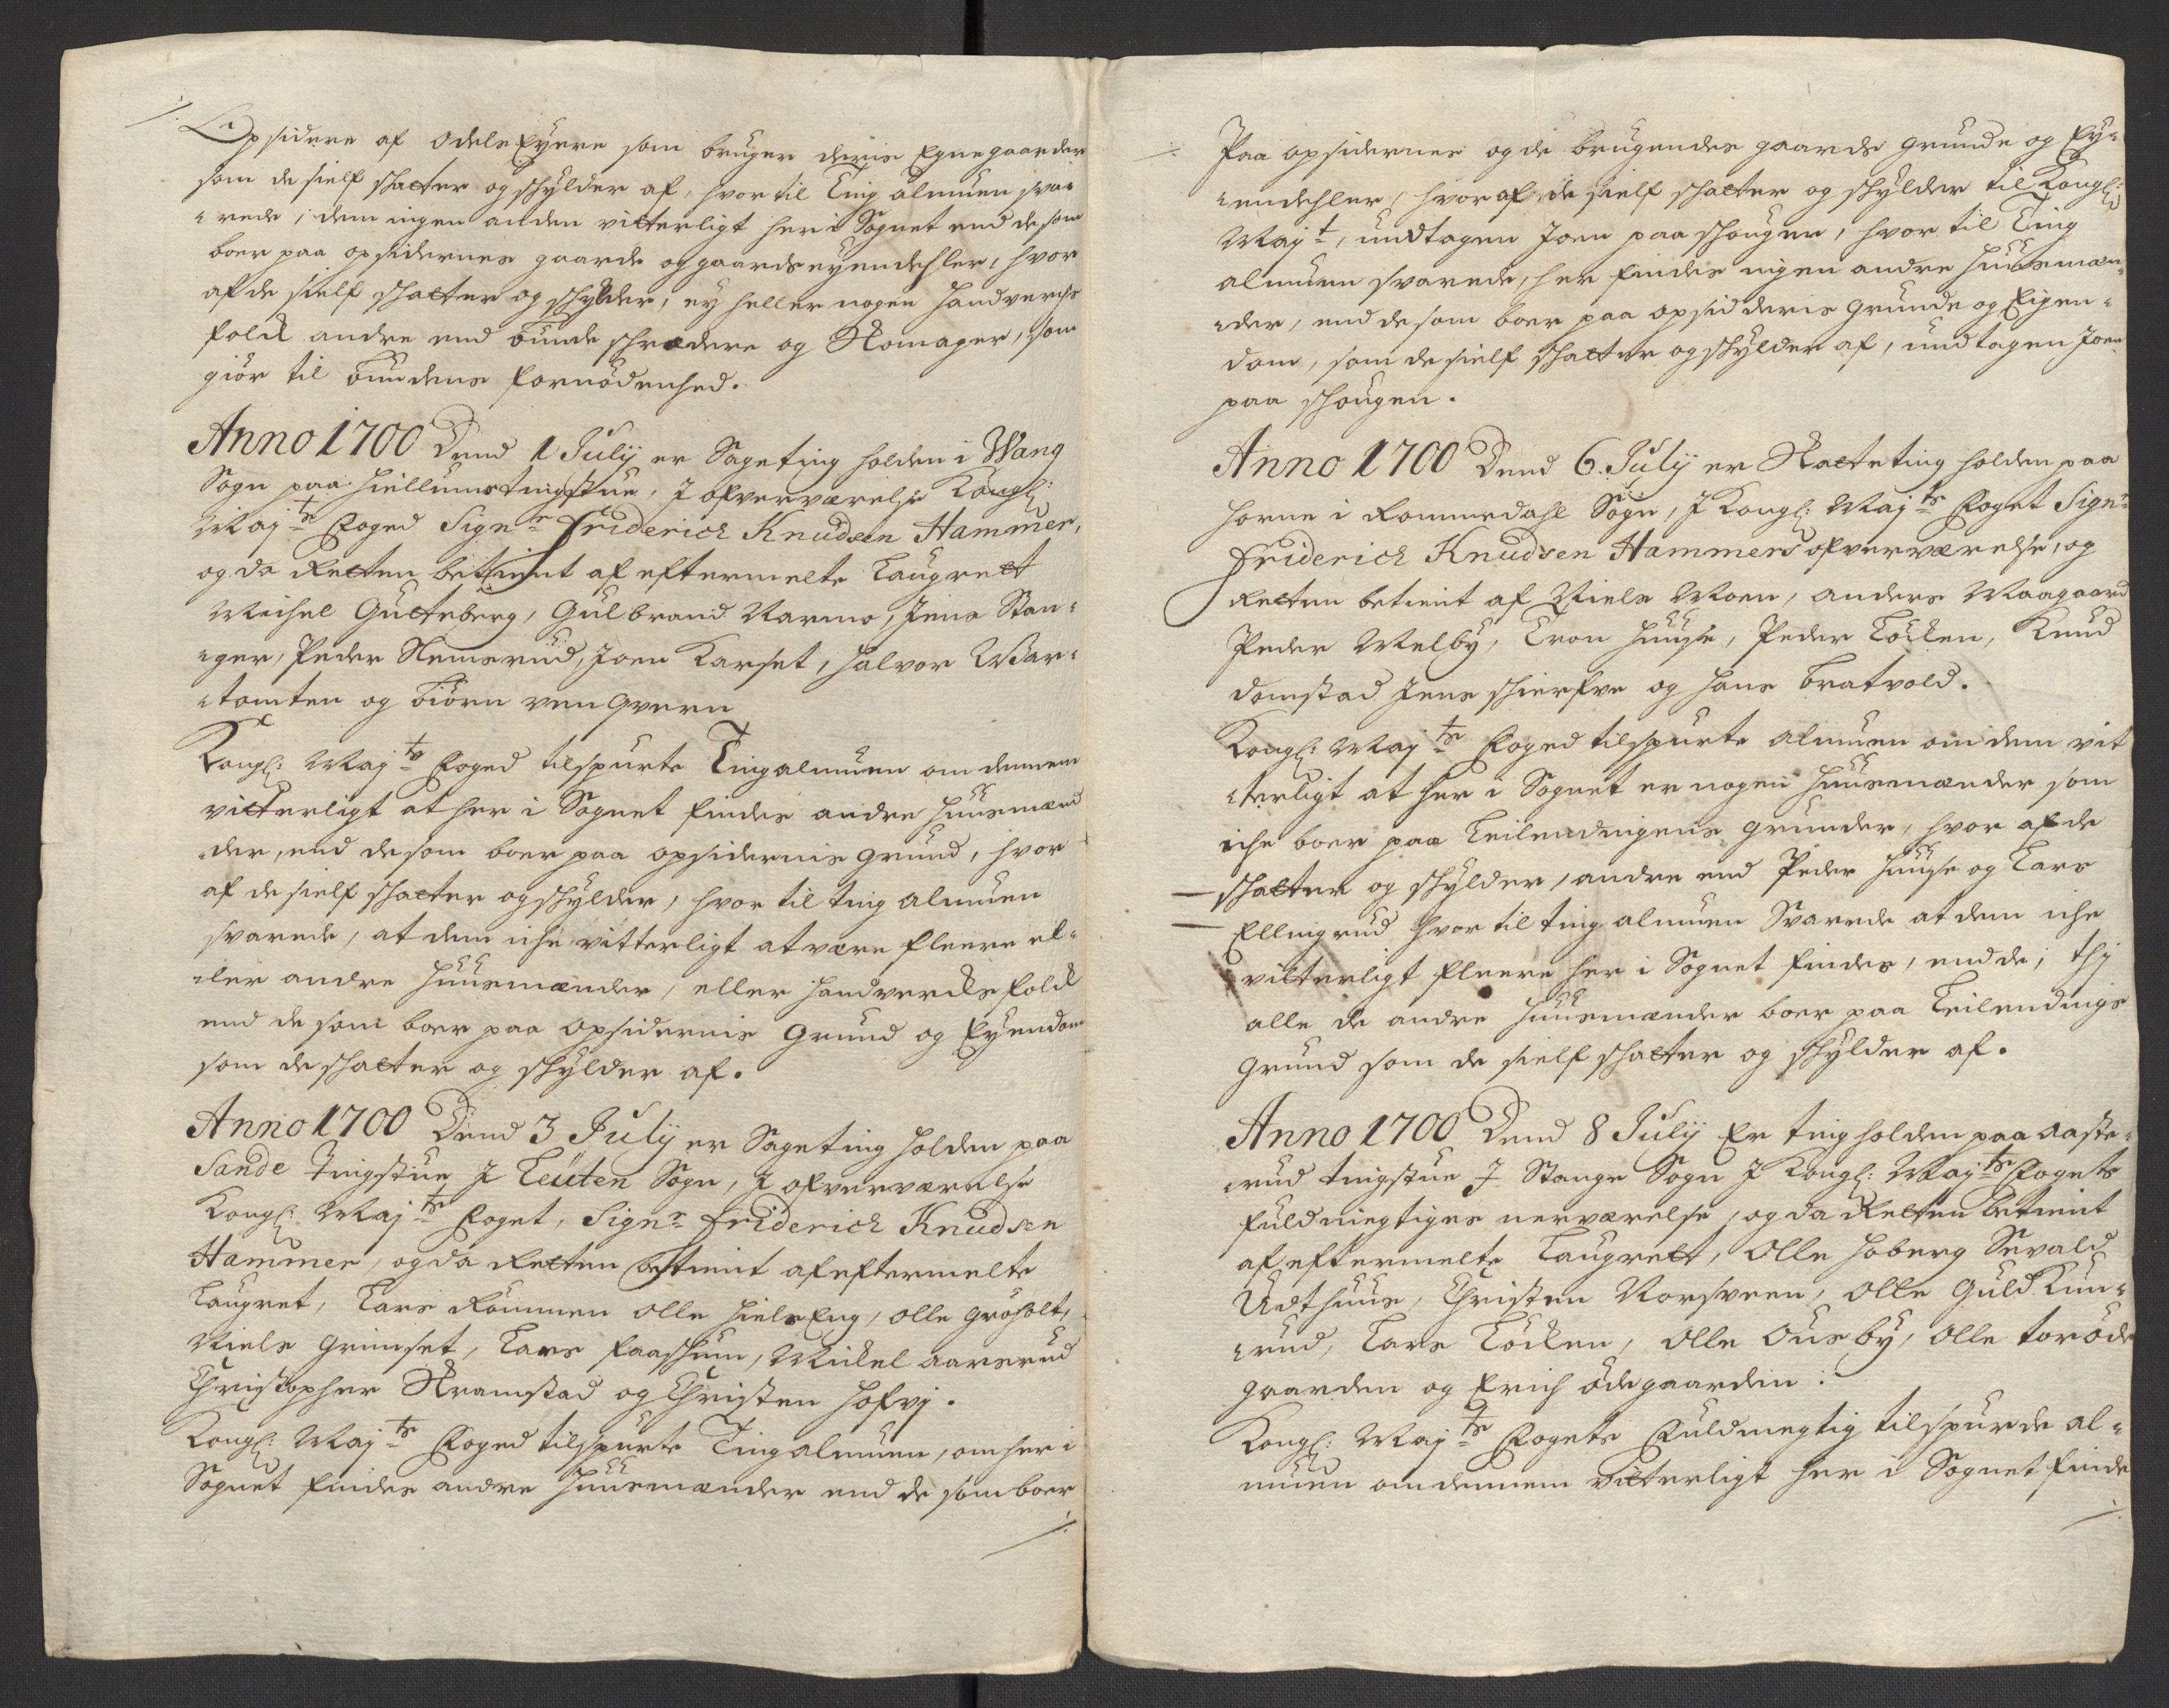 Opsidere af Odels Eyere som bruger deris Egne gaarder
som de sielf schatter og schylder af, hvor til Ting almuen svar¬
rede, dem ingen anden vitterligt her i Sognet end de som
boer paa opsidernes gaarde og gaards eyendehler, hvor
af de sielf schatter og schylder, ey heller nogen Handverchs
folck andre end bunde schrædere og Skomager, som
giör til bundens fornödenhed.
Anno 1700 Dend 1 July er Sageting holden i Wang
Sogn paa Hiellums tingstue, J ofververelse Kongl:
Mayts Foged Signr Friderich Knudsen Hammer,
og da Retten betient af eftermelte Laugrett
Michel Gulteberg, Gulbrand Narmo, Jens Stan¬
ger, Peder Nemsrud, Joen Karset, Halvor War¬
tomten og Biörn ven qvern
Kongl: Mayts Foged tilspurte Tingalmuen om dennem
vitterligt at her i Sognet findes andre Huusmænd
der, end de som boer paa opsidernis grund, hvor
af de sielf schatter og schylder, hvor til ting almuen
svarede, at dem iche vitterligt at være fleere el¬
ler andre Huusmænder, eller Handvercksfolck
end de som boer paa opsidernis grund og Eyendom
som de schatter og schylder af.
Anno 1700 Dend 3 July er Sageting holden paa
Sande Tingstue J Leuten Sogn, J ofververelse
Kongl: Mayts Foget, Signr Friderich Knudsen
Hammer, og da Retten betient af eftermelte
Laugret, Lars Römmen Olle Hiels Eng, Olle Gröholt,
Niels Grimset, Lars Faaschum, Mickel Aarsrud
Christopher Kramstad og Christen Hofvj.
Kongl: Mayts Foged tilspurte Tingalmuen, om her i
Sognet findes andre Huusmænder end de som boer
Paa opsidernes og de brugendes gaards grunde og Ey¬
endehler, hvor af de sielf schatter og schylder til Kongl:
Mayt, undtagen Joen paa Schougen, hvor til Ting
almuen svarede, her findes ingen andre Huusmæn¬
der, end de som boer paa opsidderis grunde og Eigen¬
dom, som de sielf schatter og schylder af, undtagen Joen
paa Schougen.
Anno 1700 Dend 6. July er Skatteting holden paa
Horne i Rommedahl Sogn, J Kongl: Mayts Foget Signr
Friderich Knudsen Hammers ofververelse, og
Retten betient af Niels Moen, Anders Maagaard
Peder Melby, Tron Huuse, Peder Löcken, Knud
Domstad Jens Schierfve og Hans Bratvold.
Kongl: Mayts Foged tilspurte almuen om dem vit
terligt at her i Sognet er nogen Huusmænder som
iche boer paa Leilendingens grunder, hvor af de
schatter og schylder, andre end Peder Huuse og Lars
Ellingrud hvor til ting almuen Svarede at dem iche
vitterligt fleere her i Sognet findes, end de, thj
alle de andre Huusmænder boer paa Leilendings
grund som de sielf schatter og schylder af.
Anno 1700 Dend 8 July Er ting holden paa Aaste¬
rud tingstue J Stange Sogn J Kongl: Mayts Fogets
fuldmegtiges nerværelse, og da Retten betient
af eftermelte Laugrett, Olle Hoberg Sevald
Udthuus, Christen Norsveen, Olle Guld Kun¬
rud, Lars Löcken, Olle Ousby, Olle Toröde
gaarden og Erich ödegaarden:
Kongl: Mayts Fogets Fuldmegtig tilspurde al¬
muen om dennem vitterligt her i Sognet finde